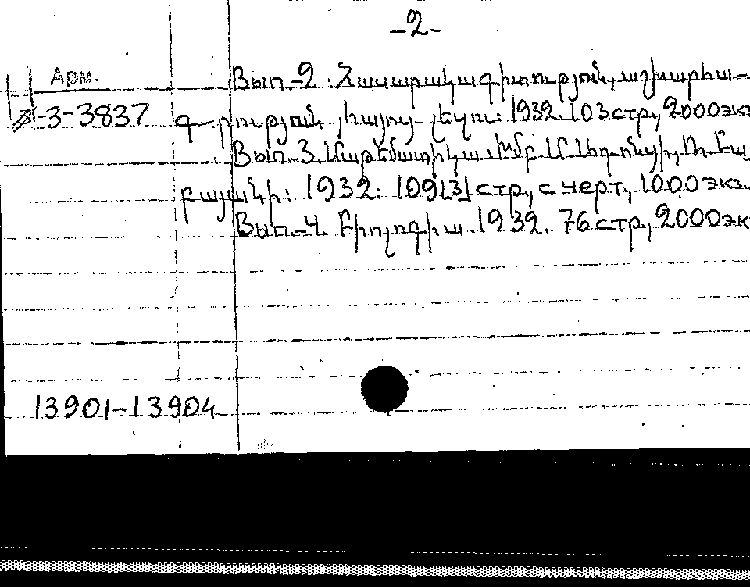 -2-
Арм.
Вып-2. Հասարակագիտություն, աշխարհա-
3-3837 գրություն, հայոց լեզու. 1932. 103 стр, 2000 экз
Вып-3. Մաթեմատիկա.
1932. 109[3] стр, с черт, 1000 экз.
Вып-4. Բիոլոգիա. 1932. 76 стр, 2000 экз
13901-13904